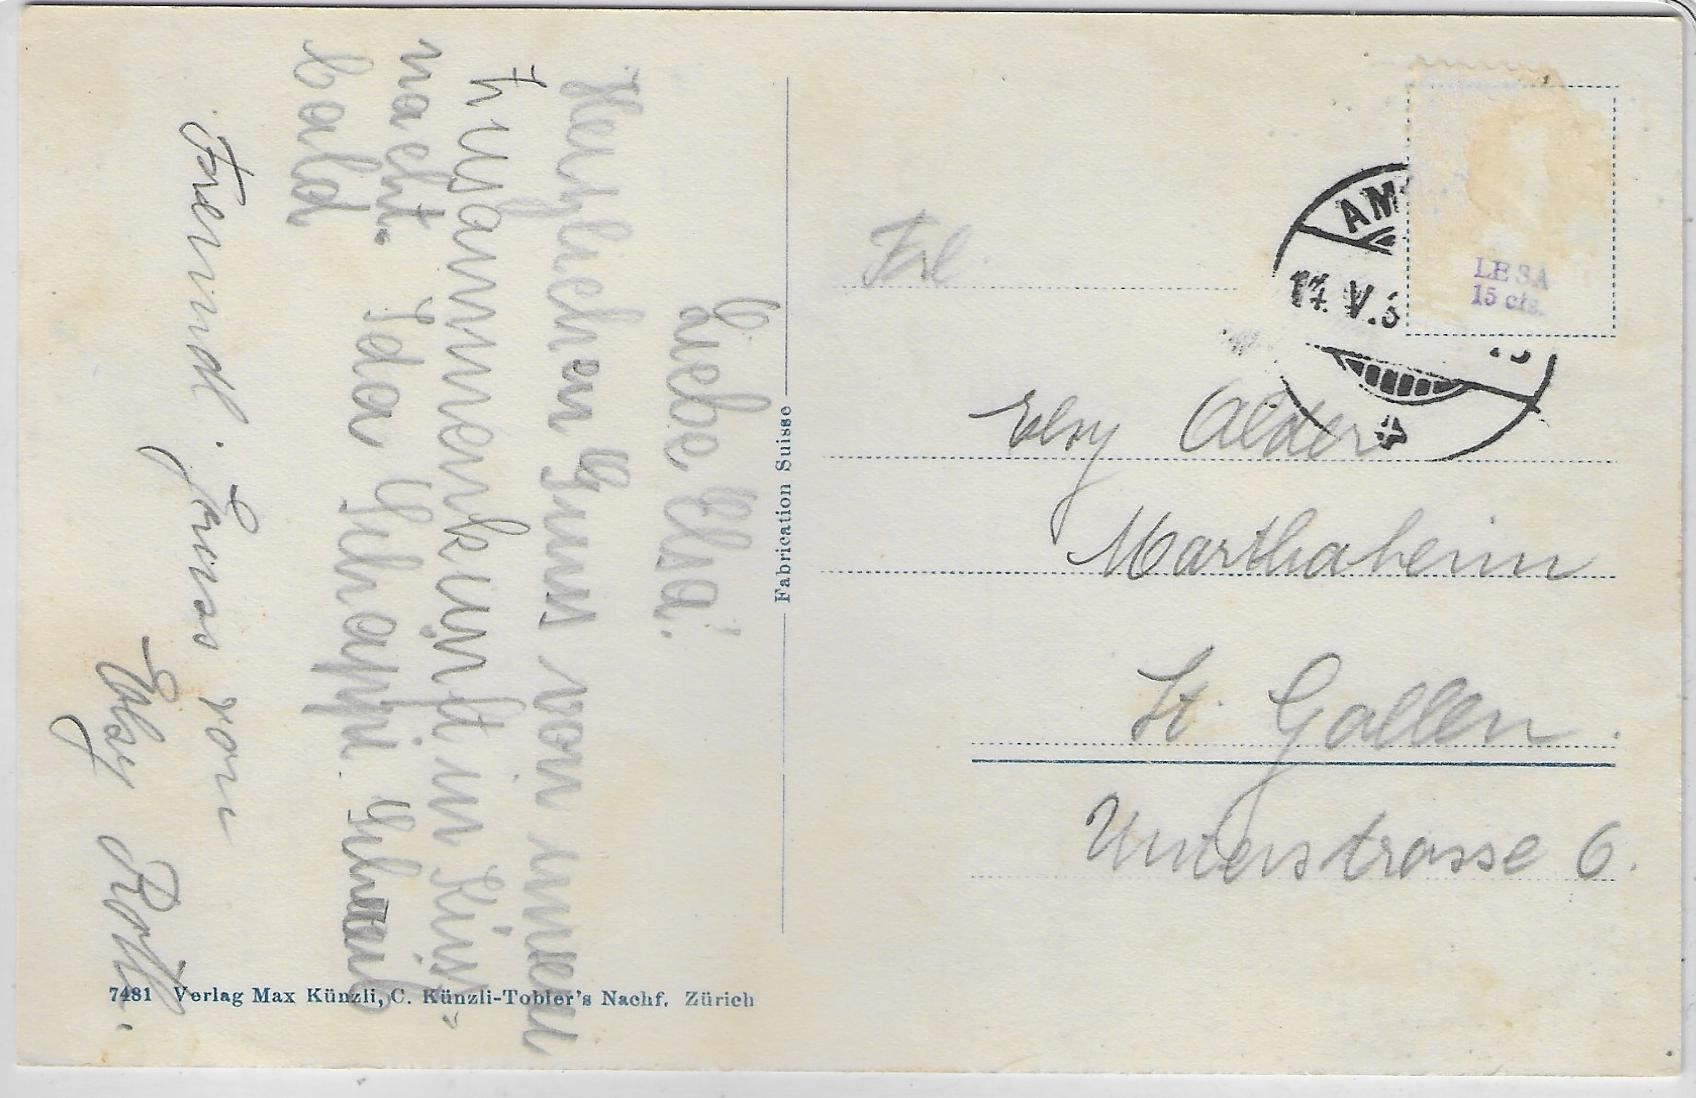 Liebe Elsa!
Herzlichen Gruss von einer
Zusammenkunft in Rüss-
nacht. Ida Schäppi. Schreib
bald
Freundl. Gruss von
Elsy Roth.
Fabrication Suisse
7481 Verlag Max Künzli, C. Künzli-Tobler's Nachf. Zürich
AM
17.V.3
LESA
15 cts.
Frl.
Elsy Alder
Marthaheim
St. Gallen.
Unterstrasse 6.